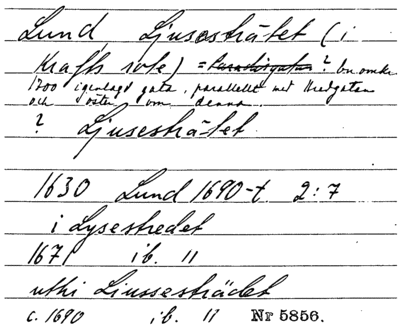 Lund, Ljusesträtet (i
Krafts rote) = ? en omkr
1700 igenlagd gata, parallell med Kredgatan
och öster om denna.
? Ljusesträtet.
1630 Lund 1690-t. 2:7
i Lysestredet
1671 ib. 11
uthi Liussesträdet
c. 1690 ib. 11 Nr 5856.